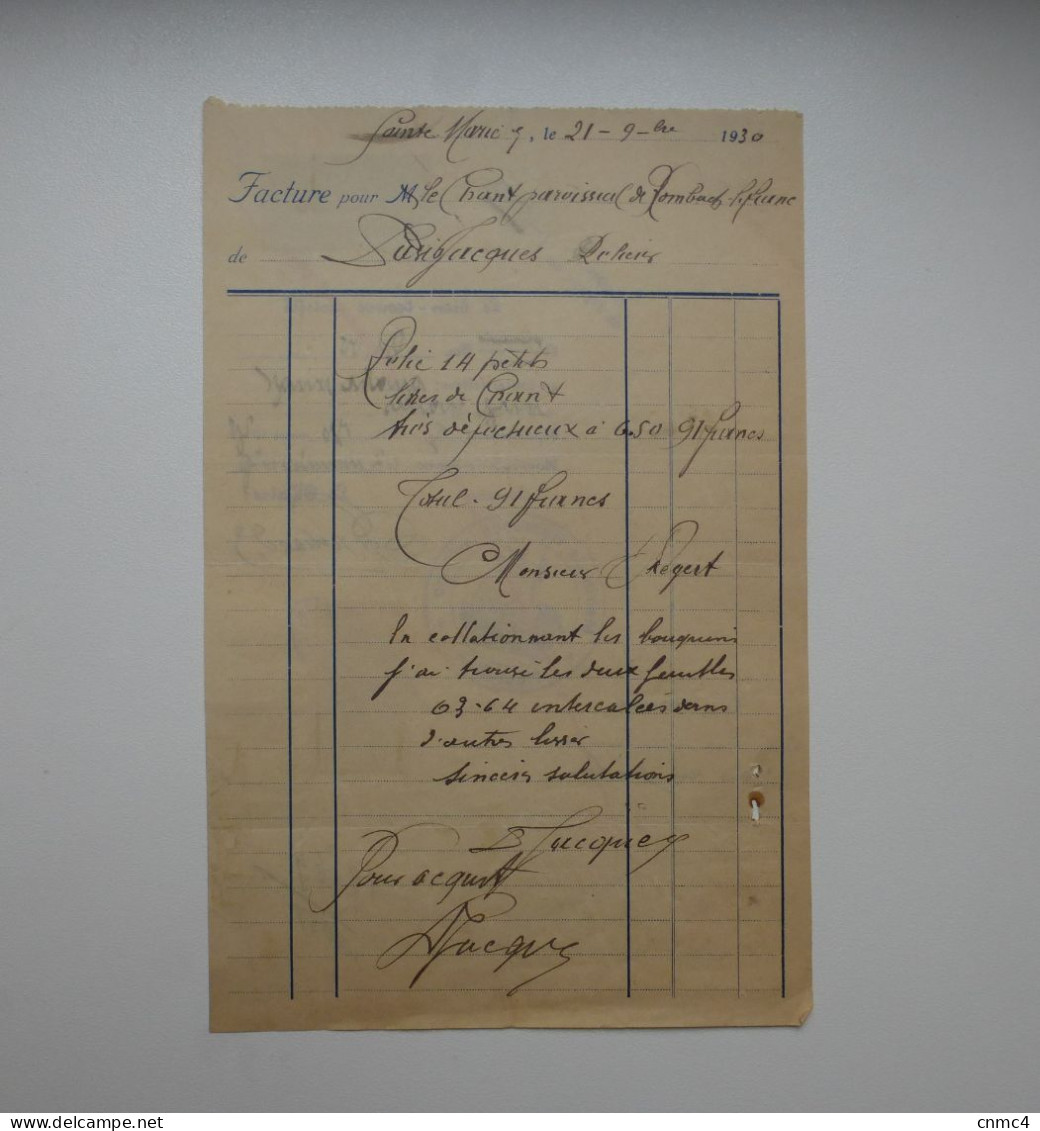 Sainte Marie, le 21-9-bre 1930
Facture pour M le Chant paroissial de Rombach-le franc
de Jacques Relieur
Relié 14 petits
livres de Chant
très défectueux à 6.50 91 francs
Total. 91 francs
Monsieur
En collationnant les bouquins
j'ai trouvé les deux feuilles
63-64 intercalées dans
d'autres
Sincères salutations
Jacques
Pour acquit
Jacques
cnmc4